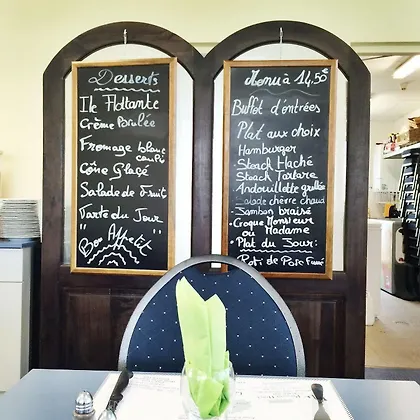 Desserts
Ile Flottante
Crème Brulée
Fromage blanc
Cône Glacé
Salade de Fruit
Tarte du Jour
" Bon Appetit "
Menu à 14,50€
Buffet d'entrées
Plat aux choix
Hamburger
- Steack Haché
- Steack Tartare
- Andouillette grillée
- Salade chèvre chaud
- Jambon braisé
- Croque Monsieur
ou Madame
- Plat du Jour:
Roti de Porc Fumé